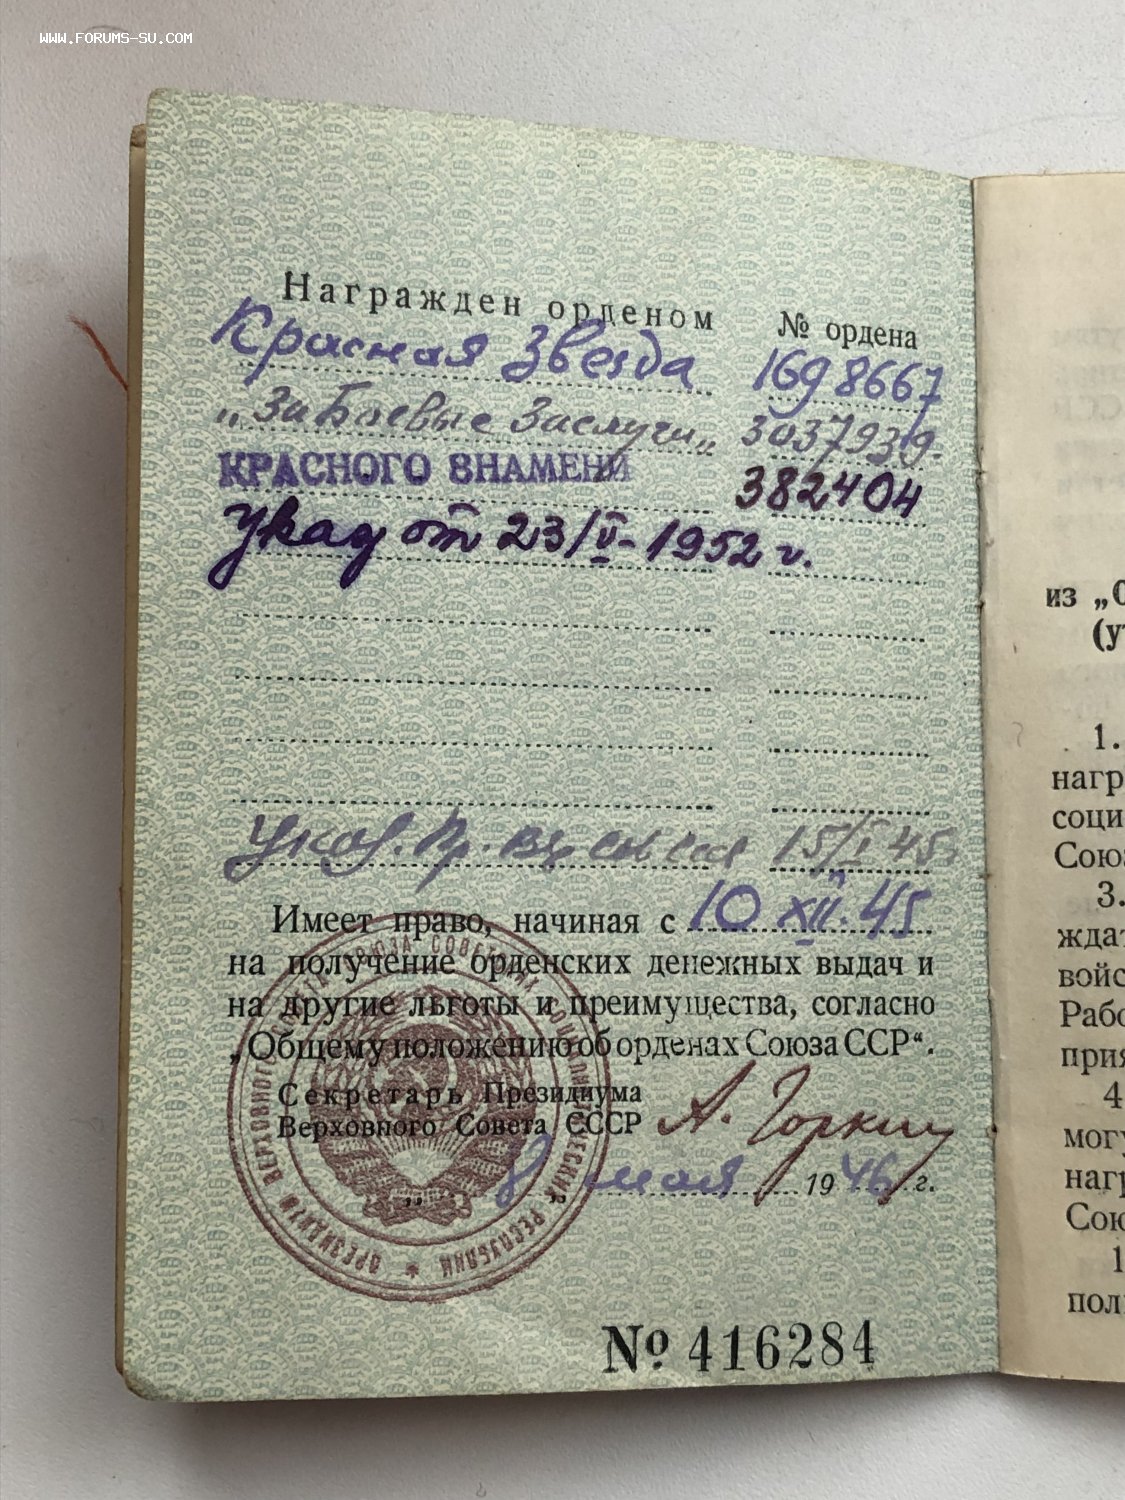 WWW.FORUMS-SU.COM
Награжден орденом № ордена
Красная Звезда 1698667
„За Боевые Заслуги„ 3037939.
КРАСНОГО ЗНАМЕНИ 382404
Указ от 23/V-1952 г.
15/I 45.
Имеет право, начиная с 10 XII.45
на получение орденских денежных выдач и
на другие льготы и преимущества, согласно
„Общему положению об орденах Союза ССР“.
Секретарь Президиума
Верховного Совета СССР А. Горкин
„8„ мая 1946 г.
№ 416284
из „О
(у
1.
нагр
соци
Союз
3.
ждат
войс
Рабо
прия
4
могу
нагр
Сою
1
пол